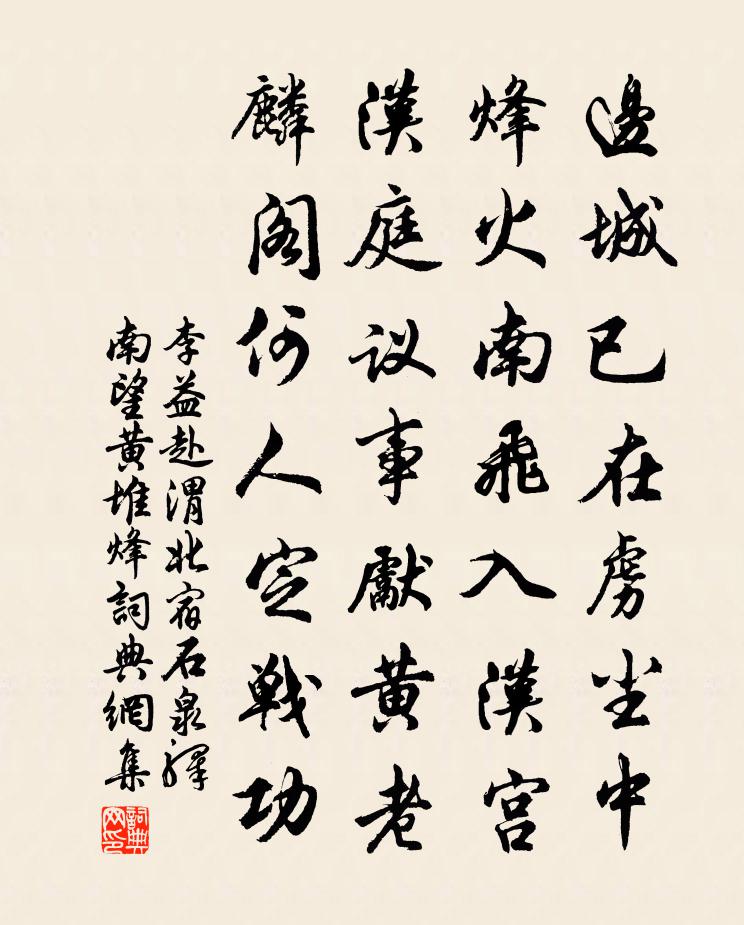 邊城已在虜尘中
烽火南飛入漢宮
漢庭议事獻黄老
麟阁何人定戦功
李益赴渭北宿石泉驛
南望黄堆烽詞典網集
詞典
网印